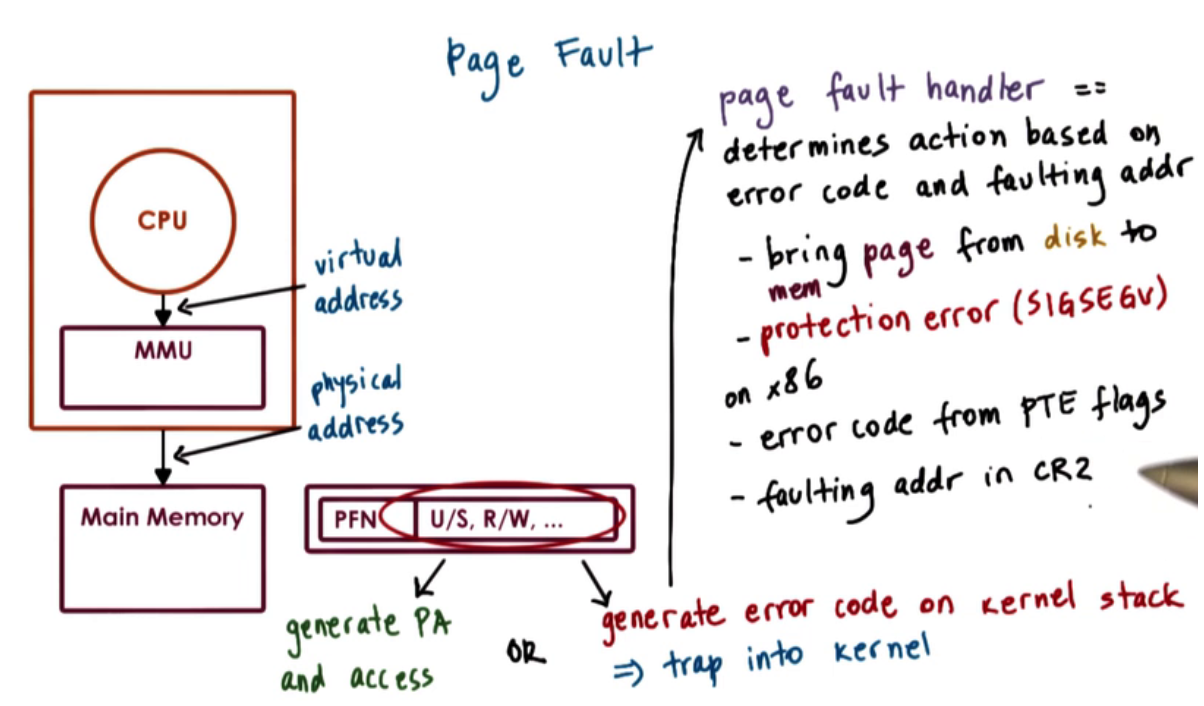 Page Fault
CPU
virtual
address
MMU
physical
address
Main Memory
PFN
U/S, R/W, ...
generate PA
and access
OR
generate error code on kernel stack
⇒ trap into kernel
page fault handler ==
determines action based on
error code and faulting addr
- bring page from disk to
mem
- protection error (SIGSEGV)
on x86
- error code from PTE flags
- faulting addr in CR2